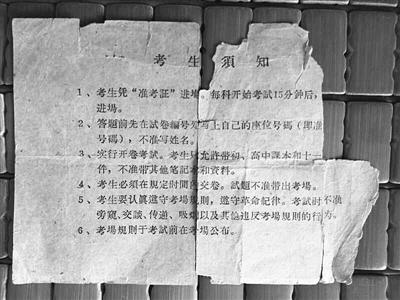 考生須知
1、考生凭“准考証”进場。每科开始考試15分钟后，
进場。
2、答題前先在試卷編号写上自己的座位号碼（即准
号碼），不准写姓名。
3、实行开卷考試。考生只允許带初、高中課本和十一
件，不准带其他笔記本和資料。
4、考生必須在規定时間内交卷。試題不准带出考場。
5、考生要认眞遵守考場規則，遵守革命紀律。考試时不准
旁窥、交談、传递、吸烟以及其他违反考場規則的行为。
6、考場規則于考試前在考場公布。